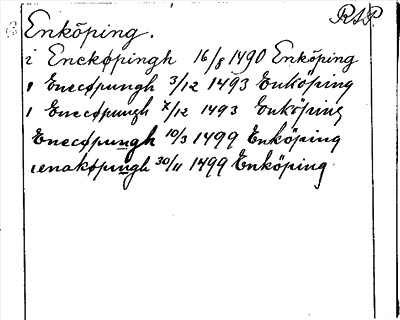 RAP.
Enköping.
i Enekøpingh 16/8 1490 Enköping
i Enecøpungh 3/12 1493 Enköping
i Enecøpungh 7/12 1493 Enköping
Enecøpungh 10/3 1499 Enköping
enakøpungh 30/11 1499 Enköping